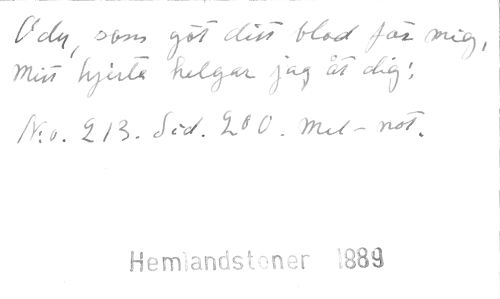 O du, som göt ditt blod för mig,
Mitt hjerta helgar jag åt dig;
N:o. 213. Sid. 200. Mel-not.
Hemlandstoner 1889